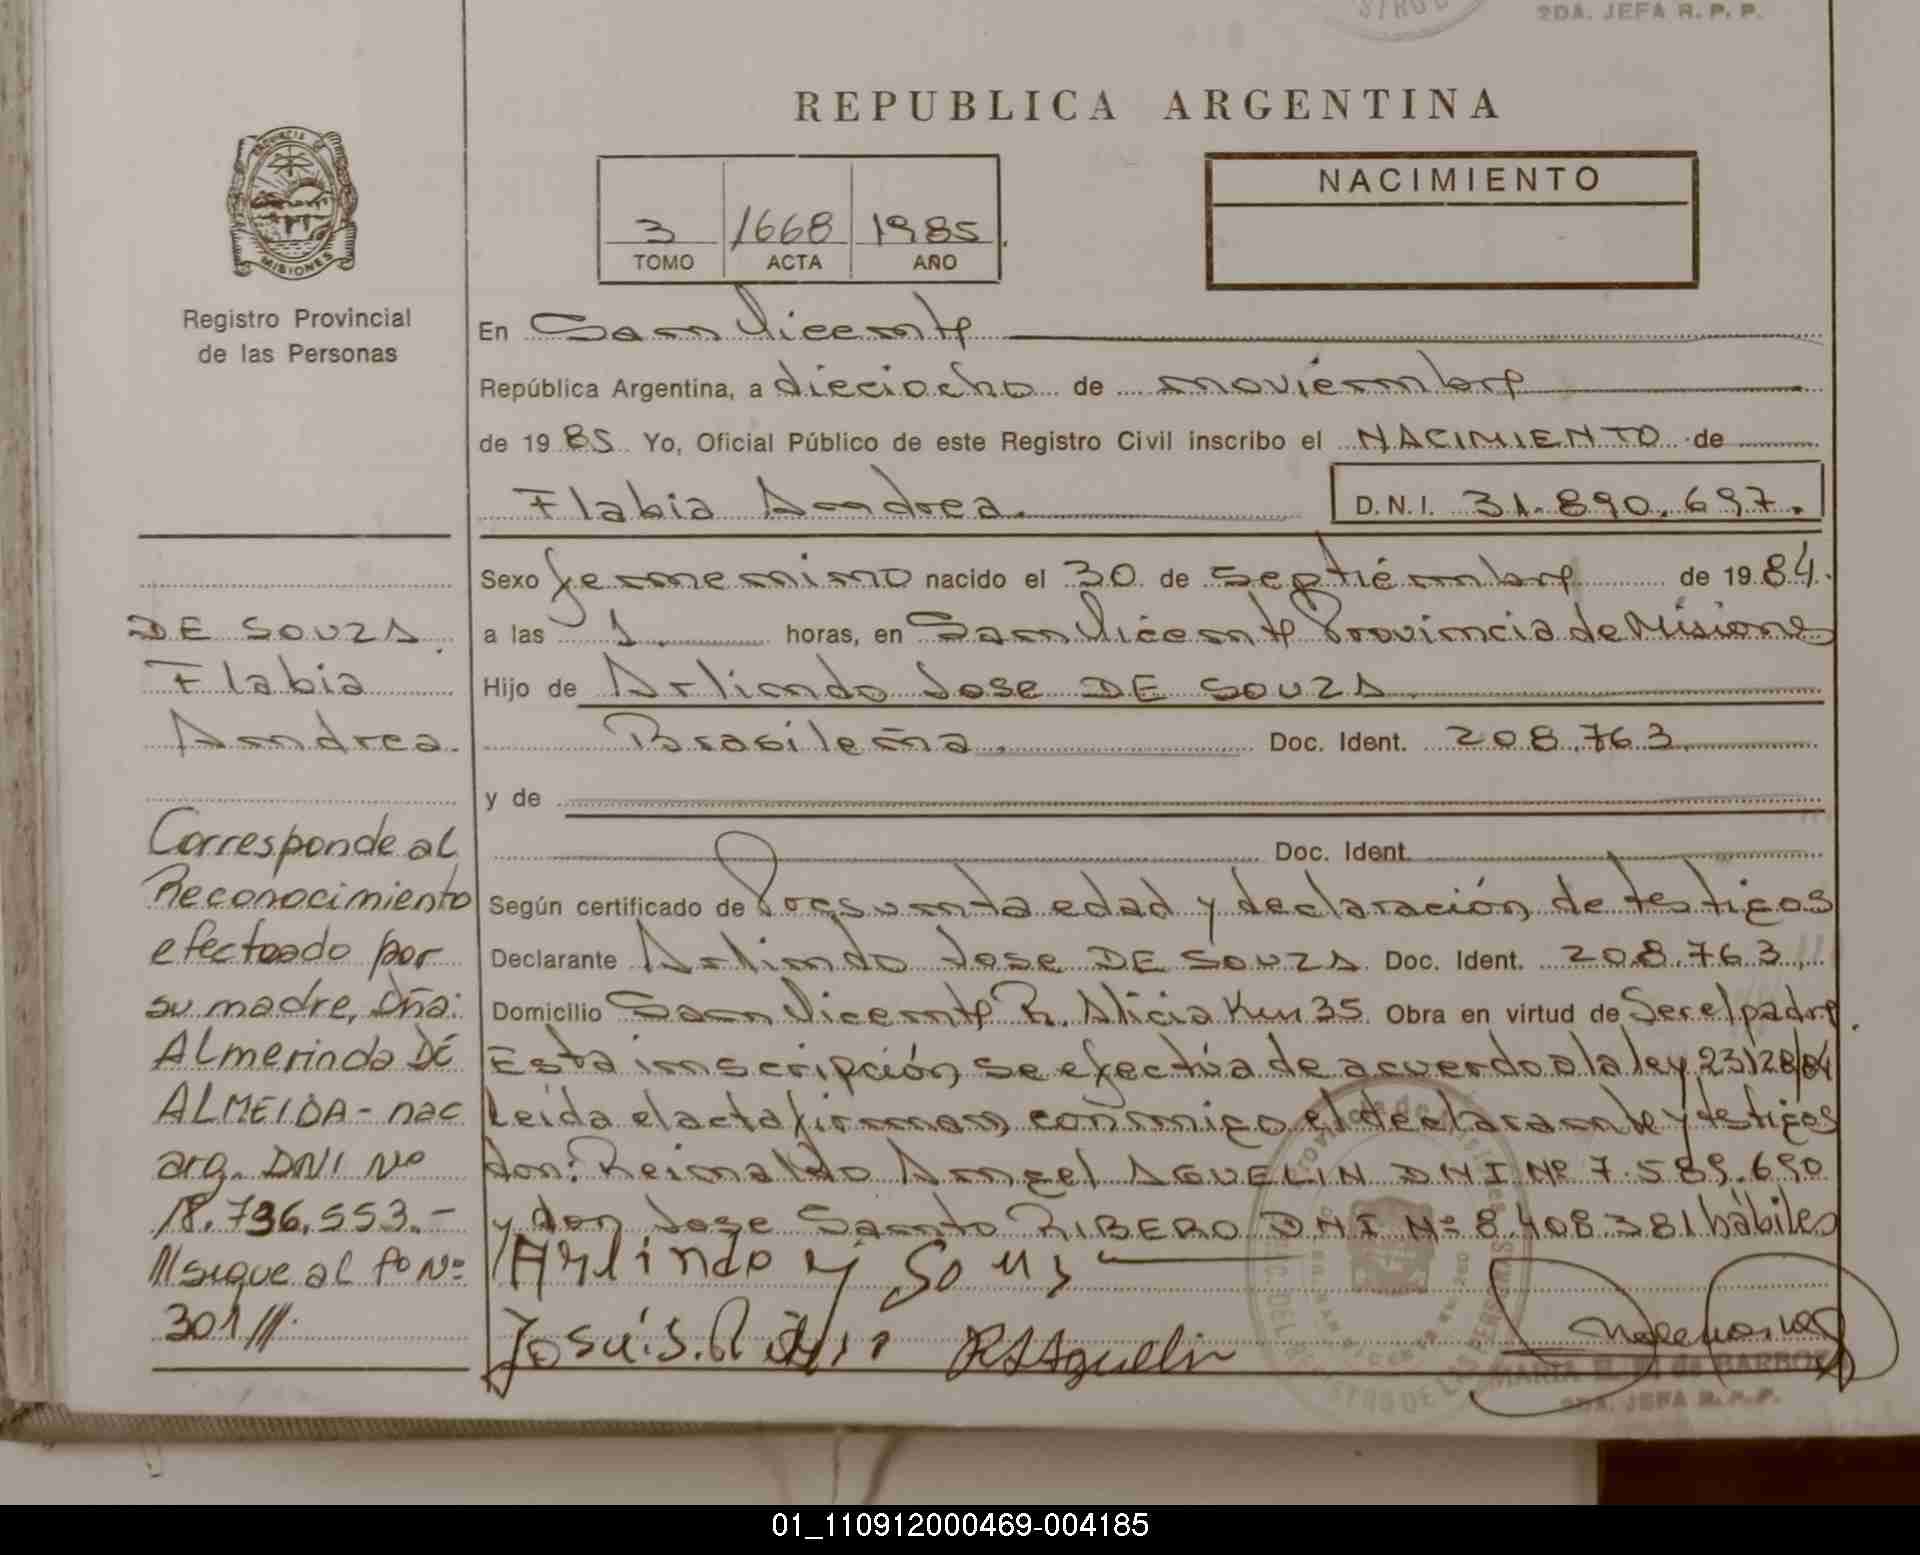 2DA. JEFA R. P. P.
REPUBLICA ARGENTINA
NACIMIENTO
3 1668 1985
TOMO ACTA AÑO
PROVINCIA DE
MISIONES
Registro Provincial
de las Personas
En San Vicente
República Argentina, a dieciocho de noviembre
de 1985 Yo, Oficial Público de este Registro Civil inscribo el NACIMIENTO de
Flabia Andrea. D.N.I. 31.890.697.
Sexo femenino nacido el 30 de septiembre de 1984.
a las 1. horas, en San Vicente Provincia de Misiones
Hijo de Arlindo Jose DE SOUZA
Brasileña. Doc. Ident. 208.763
y de
Doc. Ident.
Según certificado de Presunta edad y declaración de testigos
Declarante Arlindo Jose DE SOUZA Doc. Ident. 208.763
Domicilio San Vicente R. Alicia Km 35 Obra en virtud de Ser el padre.
Esta inscripción se efectúa de acuerdo a la ley 23128/84
Leida el acta firman conmigo el declarante y testigos
don: Reinaldo Angel AGUELIN DNI Nº 7.589.690
y don Jose Santo RIBERO DNI Nº 8.408.381 hábiles
DE SOUZA.
Flabia
Andrea.
Corresponde al
Reconocimiento
efectuado por
su madre, Dña:
ALmerinda DE
ALMEIDA - nac
arg. DNI Nº
18.736.553.-
///sigue al fº Nº
301///.
Arlindo j Souz
RAAguelin
MARIA
de BARROS
2DA. JEFA R.P.P.
01_110912000469-004185